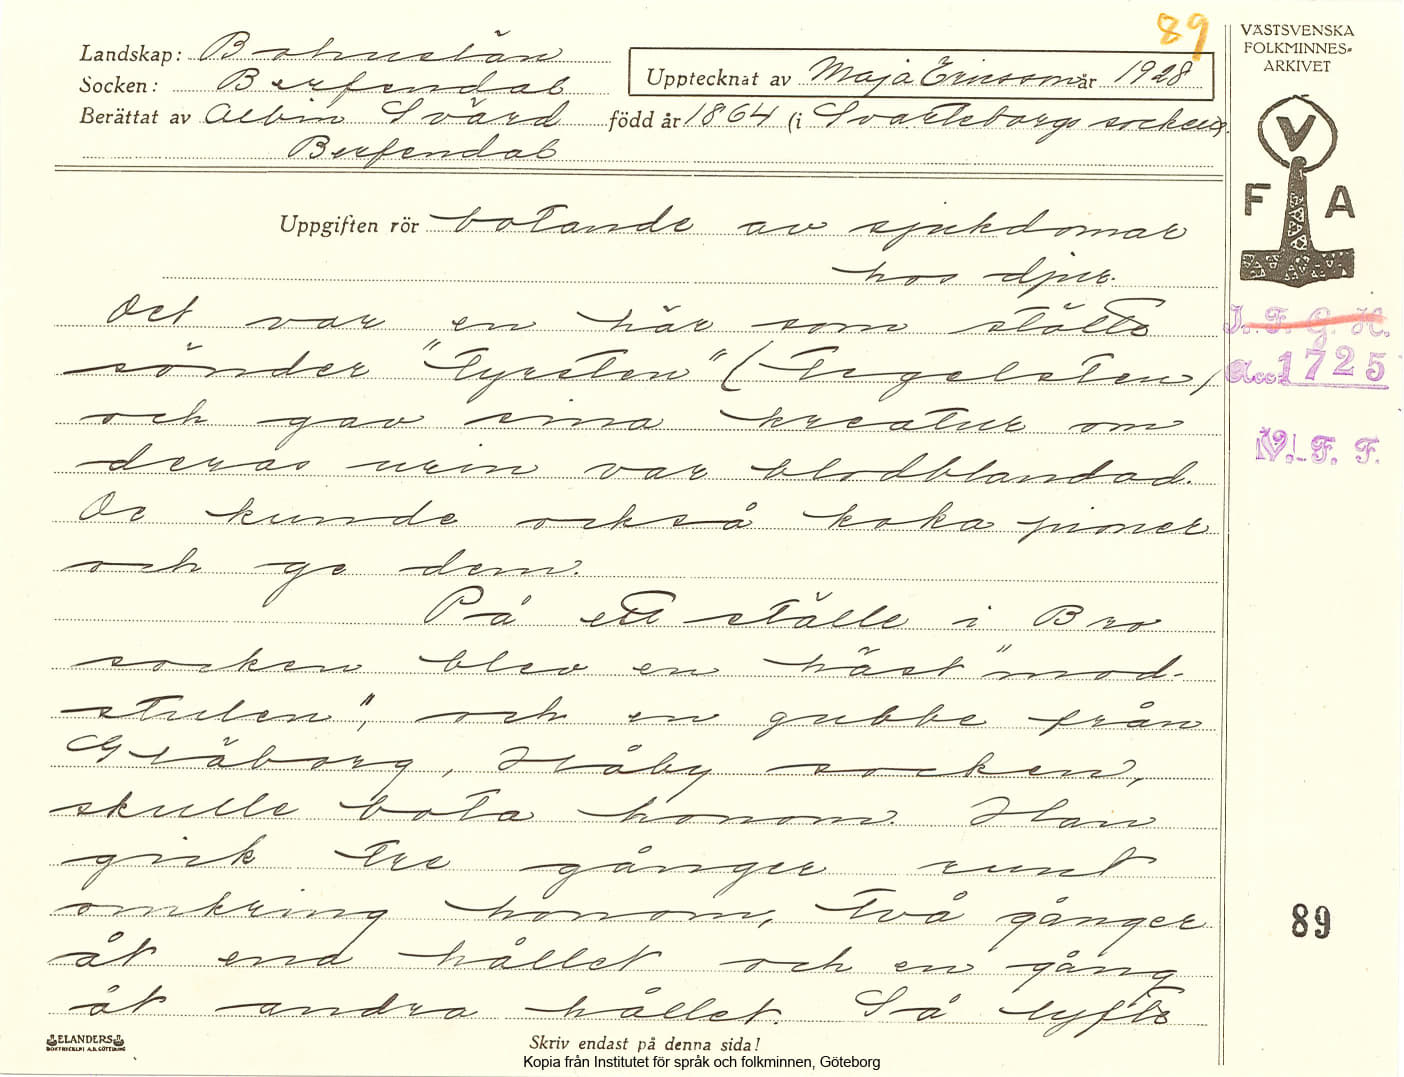 89
Landskap: Bohuslän
Socken: Berfendal
Upptecknat av Maja Ericsson år 1928
Berättat av Albin Svärd född år 1864 (i Svarteborgs socken).
Berfendal
VÄSTSVENSKA
FOLKMINNES-
ARKIVET
V
F A
I. F. G. H.
Acc. 1725
V. F. F.
Uppgiften rör botande av sjukdomar
hos djur.
Det var en här som stötte
sönder "tyrsten" (Tegelsten)
och gav sina kreatur om
deras urin var blodblandad.
De kunde också koka pioner
och ge dem.
På ett ställe i Bro
socken blev en häst "mod-
stulen", och en gubbe från
Gläborg, Håby socken,
skulle bota honom. Han
gick tre gånger runt
omkring honom, två gånger
åt ena hållet och en gång
åt andra hållet. Så lyfte
89
ELANDERS
BOKTRYCKERI A.B. GÖTEBORG
Skriv endast på denna sida!
Kopia från Institutet för språk och folkminnen, Göteborg